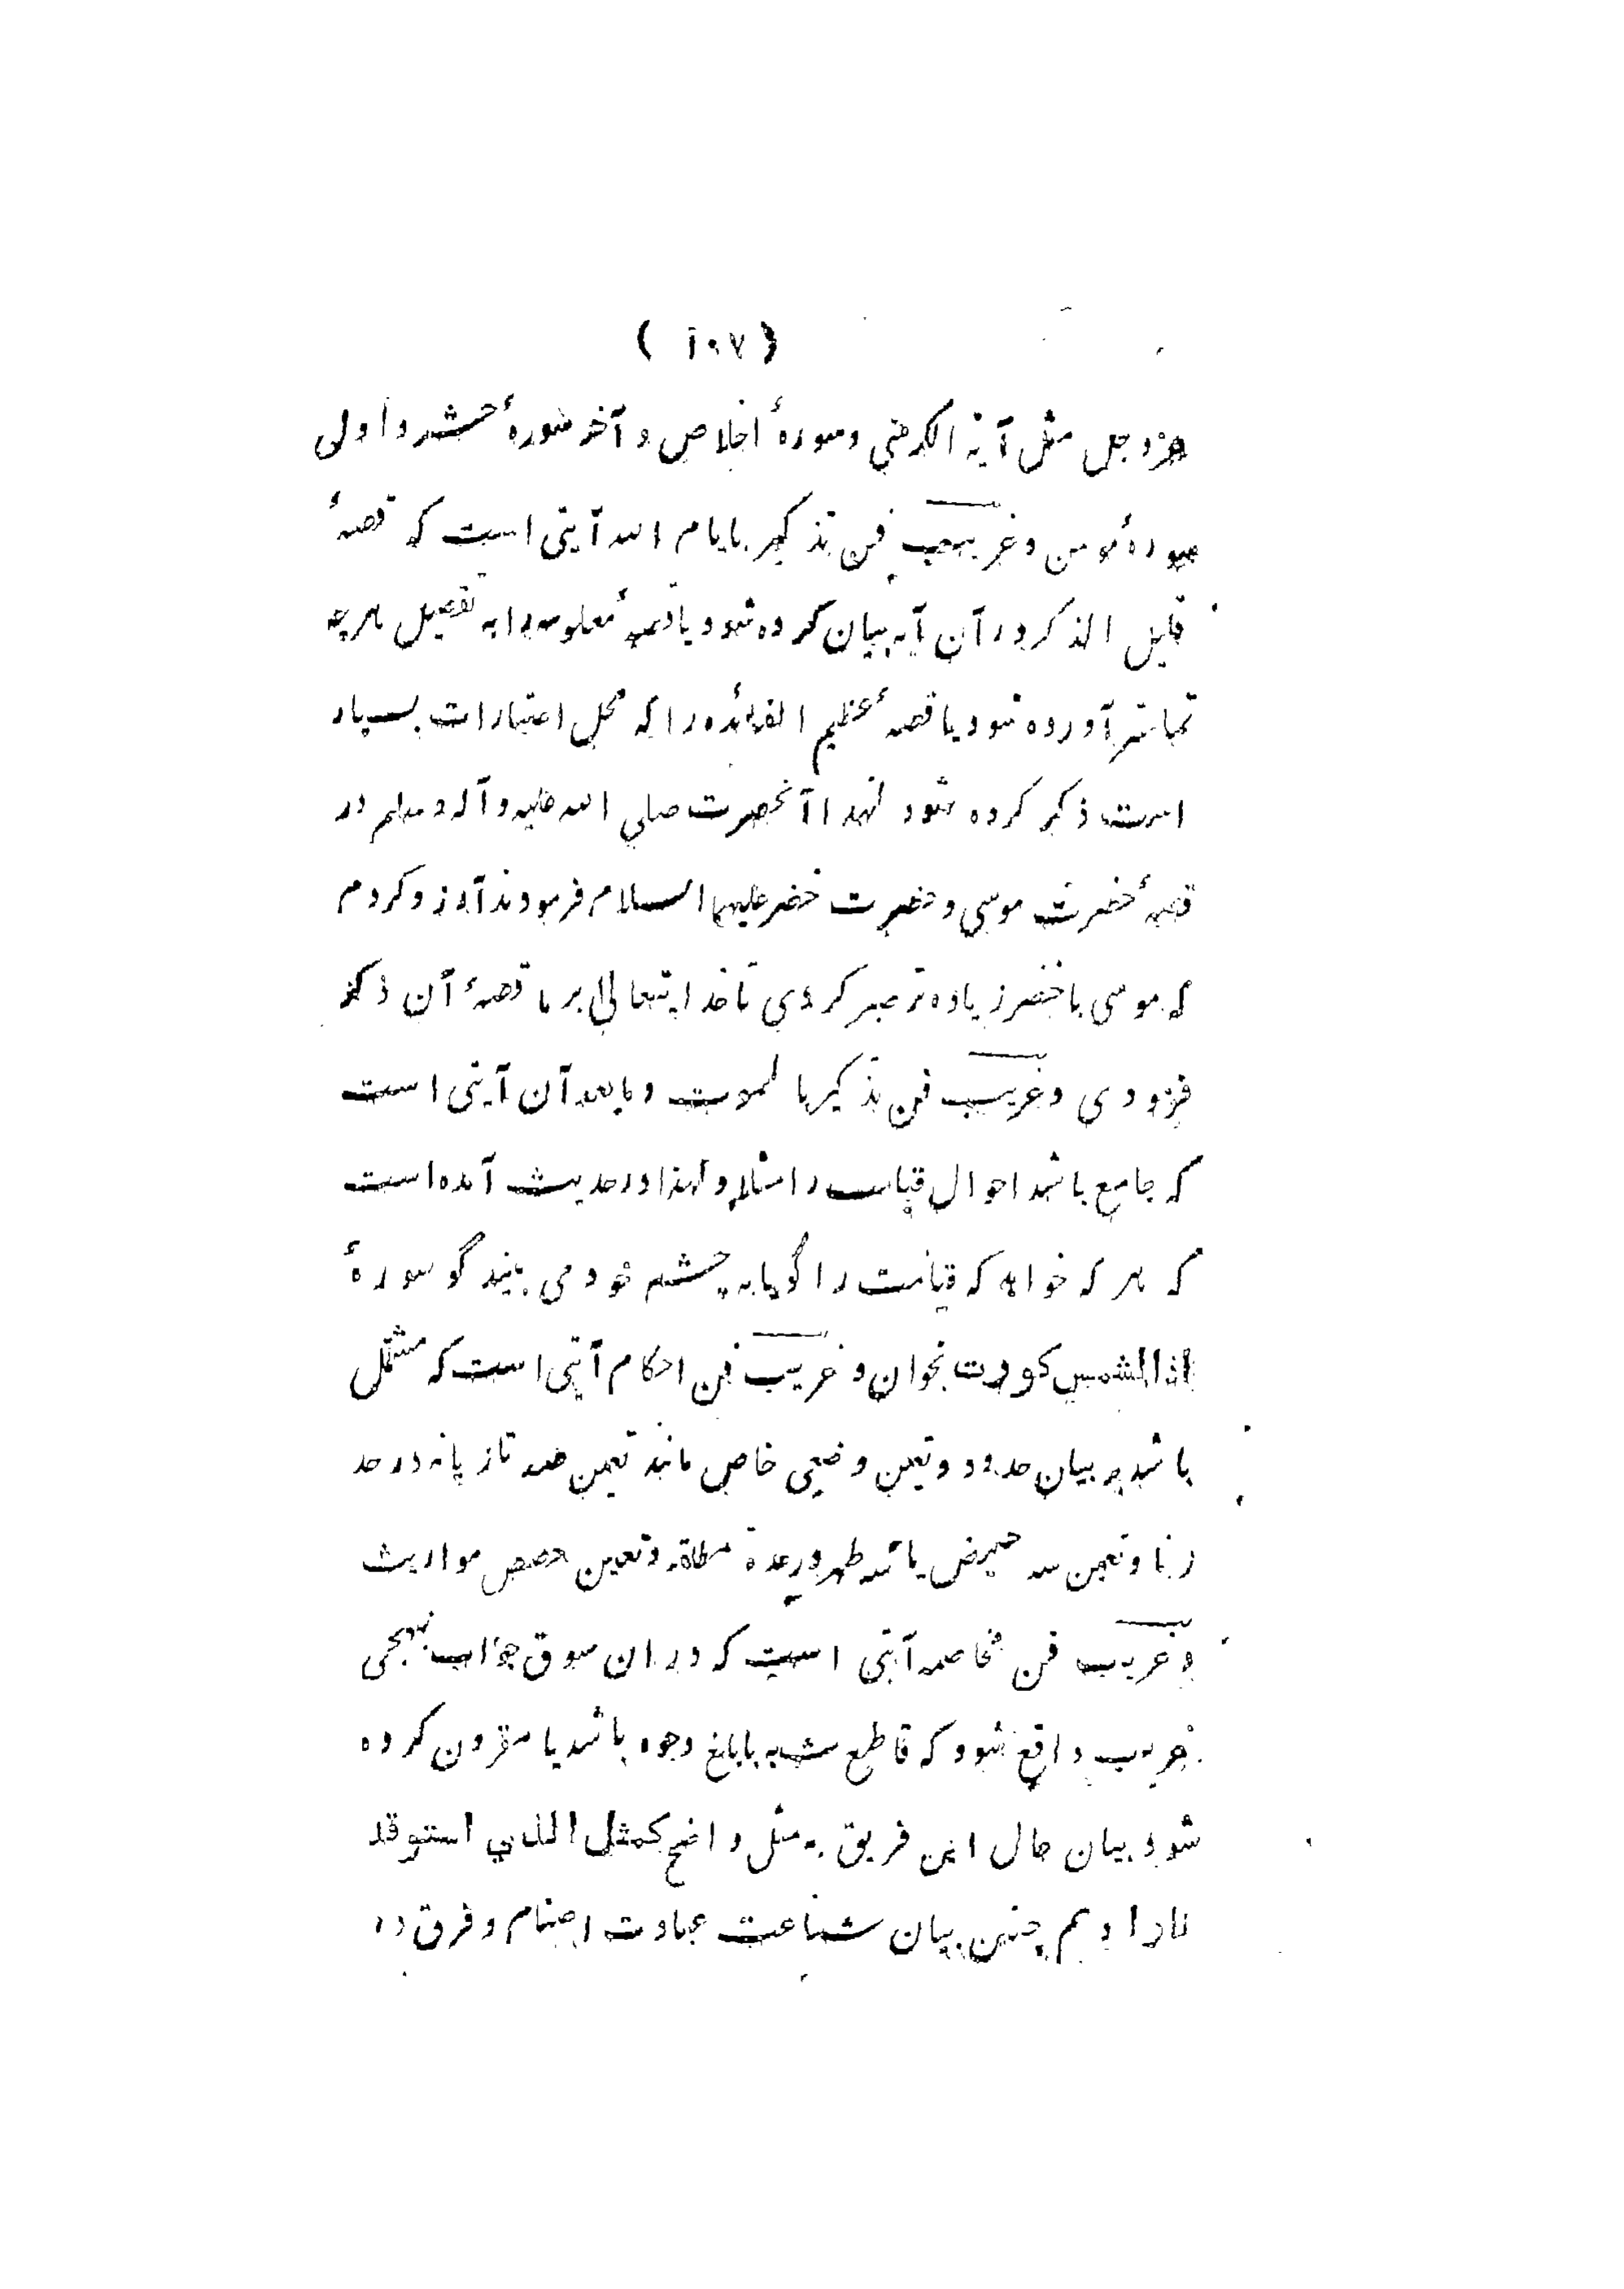 ( ۱۰۷ )
عزوجل مثل آیة الکرسی وسورهٔ اخلاص و آخر سورهٔ حشر و اولی
سورهٔ مومن و غریب فن تذکیر بایام الله آیتی است که قصهٔ
قلیل الذکر در آن آیه بیان کرده شود یا قصهٔ معلومه را به تفصیل هرچه
تمامتر آورده شود یا قصهٔ عظیم الفائده را که محل اعتبارات بسیار
است ذکر کرده شود لهذا آنحضرت صلی الله علیه و آله وسلم در
قصهٔ حضرت موسی و حضرت خضر علیهما السلام فرمودند آرزو کردم
که موسی با خضر زیاده تر صبر کردی تا خدایتعالی بر ما قصهٔ آن ذکر
فرمودی و غریب فن تذکیر بالموت و مابعد آن آیتی است
که جامع باشد احوال قیامت را مثلا و لهذا در حدیث آمده است
که هر که خواهد که قیامت را گویا به چشم خود می بیند گو سورهٔ
اذا الشمس کورت بخوان و غریب فن احکام آیتی است که مشتمل
باشد بر بیان حدود و تعین وضعی خاص مانند تعین صد تازیانه در حد
زنا و تعین سه حیض یا سه طهر در عدة مطلقه و تعین حصص مواریث
و غریب فن مخاصمه آیتی است که در ان سوق جواب بنهجی
غریب واقع شود که قاطع شبه بابلغ وجوه باشد یا مقرون کرده
شود بیان حال این فریق به مثل واضح کمثل الذي استوقد
نارا و هم چنین بیان شناعت عبادت اصنام و فرق در